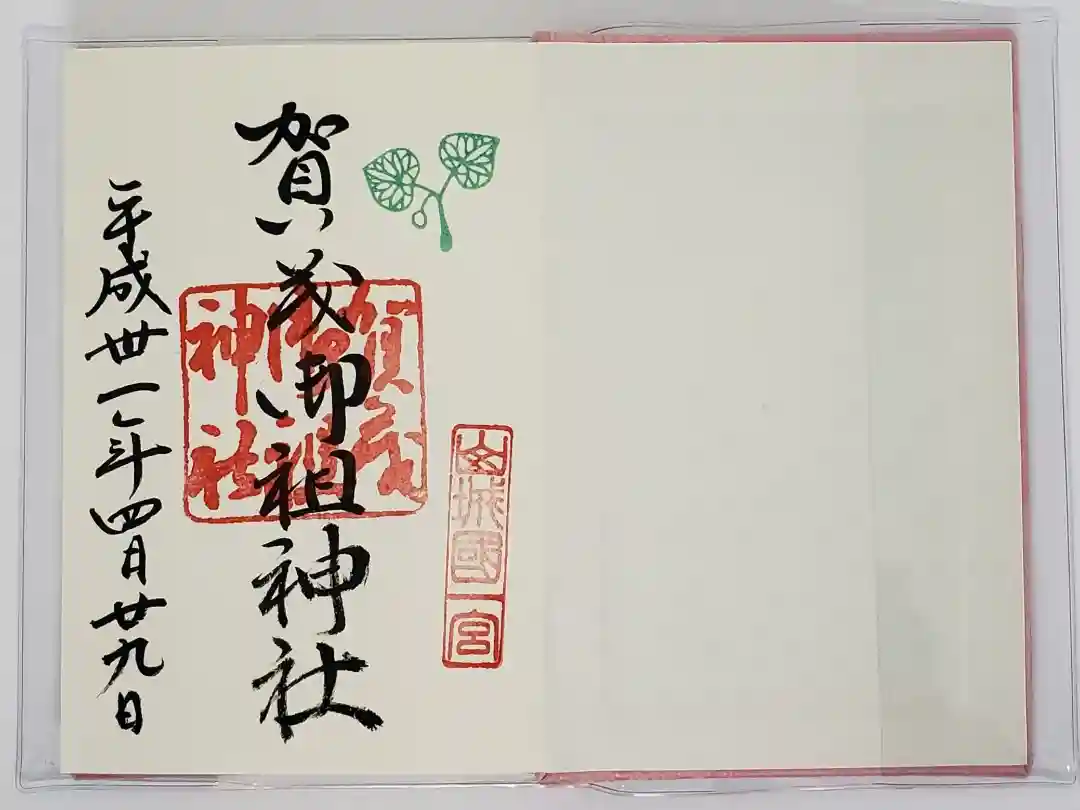 山城國一宮
賀茂御祖神社
賀茂
御祖
神社
平成丗一年四月廿九日